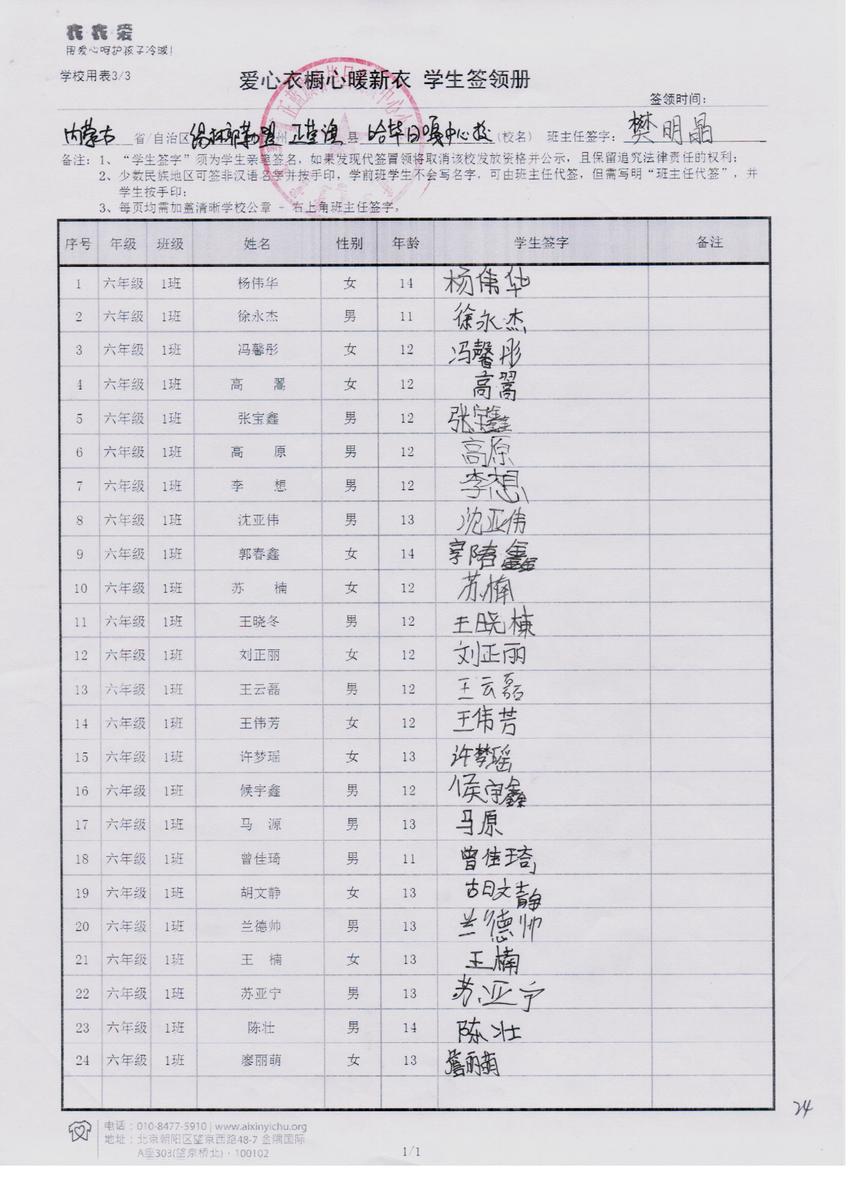 衣衣爱
用爱心呵护孩子冷暖!
学校用表3/3
爱心衣橱心暖新衣 学生签领册
签领时间:
内蒙古 省/自治区 锡林郭勒盟 州 正蓝旗 县 哈毕日嘎中心校 (校名) 班主任签字: 樊明晶
备注: 1、“学生签字”须为学生亲笔签名, 如果发现代签冒领将取消该校发放资格并公示, 且保留追究法律责任的权利;
2、少数民族地区可签非汉语名字并按手印, 学前班学生不会写名字, 可由班主任代签, 但需写明“班主任代签”, 并
学生按手印;
3、每页均需加盖清晰学校公章 - 右上角班主任签字,
序号 年级 班级 姓名 性别 年龄 学生签字 备注
1 六年级 1班 杨伟华 女 14 杨伟华
2 六年级 1班 徐永杰 男 11 徐永杰
3 六年级 1班 冯馨彤 女 12 冯馨彤
4 六年级 1班 高 翯 女 12 高翯
5 六年级 1班 张宝鑫 男 12 张宝鑫
6 六年级 1班 高 原 男 12 高原
7 六年级 1班 李 想 男 12 李想
8 六年级 1班 沈亚伟 男 13 沈亚伟
9 六年级 1班 郭春鑫 女 14 郭春鑫
10 六年级 1班 苏 楠 女 12 苏楠
11 六年级 1班 王晓冬 男 12 王晓栋
12 六年级 1班 刘正丽 女 12 刘正丽
13 六年级 1班 王云磊 男 12 王云磊
14 六年级 1班 王伟芳 女 12 王伟芳
15 六年级 1班 许梦瑶 女 13 许梦瑶
16 六年级 1班 候宇鑫 男 12 侯宇鑫
17 六年级 1班 马 源 男 13 马原
18 六年级 1班 曾佳琦 男 11 曾佳琦
19 六年级 1班 胡文静 女 13 胡文静
20 六年级 1班 兰德帅 男 13 兰德帅
21 六年级 1班 王 楠 女 13 王楠
22 六年级 1班 苏亚宁 男 13 苏亚宁
23 六年级 1班 陈壮 男 14 陈壮
24 六年级 1班 廖丽萌 女 13 丽萌
24
电话: 010-8477-5910 | www.aixinyichu.org
地址: 北京朝阳区望京西路48-7 金隅国际
A座303(望京桥北), 100102
1/1